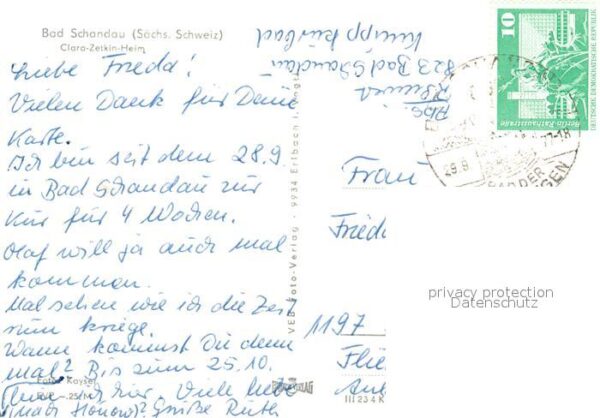 Bad Schandau (Sächs. Schweiz)
Clara-Zetkin-Heim
Liebe Frieda!
Vielen Dank für Deine
Karte.
Ich bin seit dem 28.9
in Bad Schandau zur
Kur für 4 Wochen.
Olaf will ja auch mal
kommen.
Mal sehen wie ich die Zeit
rum kriege.
Wann kommst Du denn
mal? Bis zum 25.10.
bin ich hier. Viele liebe
Grüße Ruth
Foto: Kayser
VEB Foto-Verlag · 9934 Erlbach i. Vogtl.
III 23 4 K
Abs.
823 Bad Schandau
Kneippkurbad
10
DEUTSCHE DEMOKRATISCHE REPUBLIK
Berlin-Rathausstraße
29.9
77-18
Frau
Fried
1197
Flie
privacy protection
Datenschutz